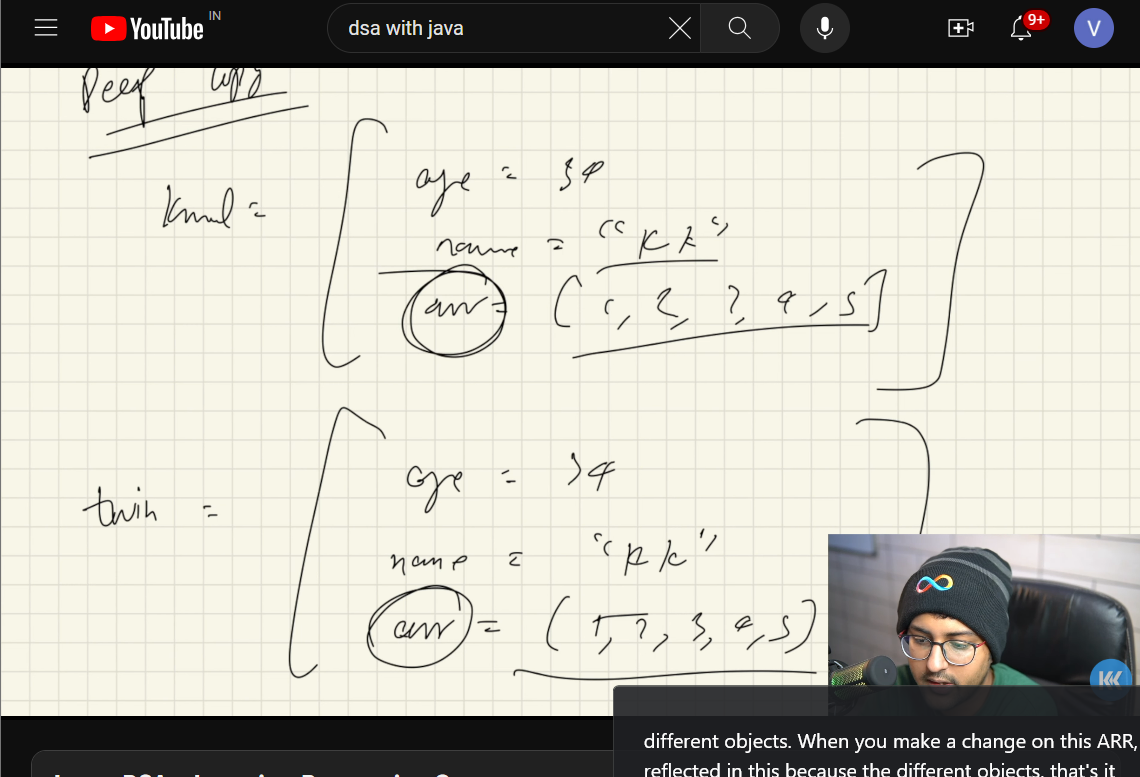 YouTube IN
dsa with java
9+
V
Deep copy
kunal =
age = 34
name = "KK"
arr = [1, 2, 3, 4, 5]
twin =
age = 34
name = "KK"
arr = [1, 2, 3, 4, 5]
KK
different objects. When you make a change on this ARR,
reflected in this because the different objects, that's it